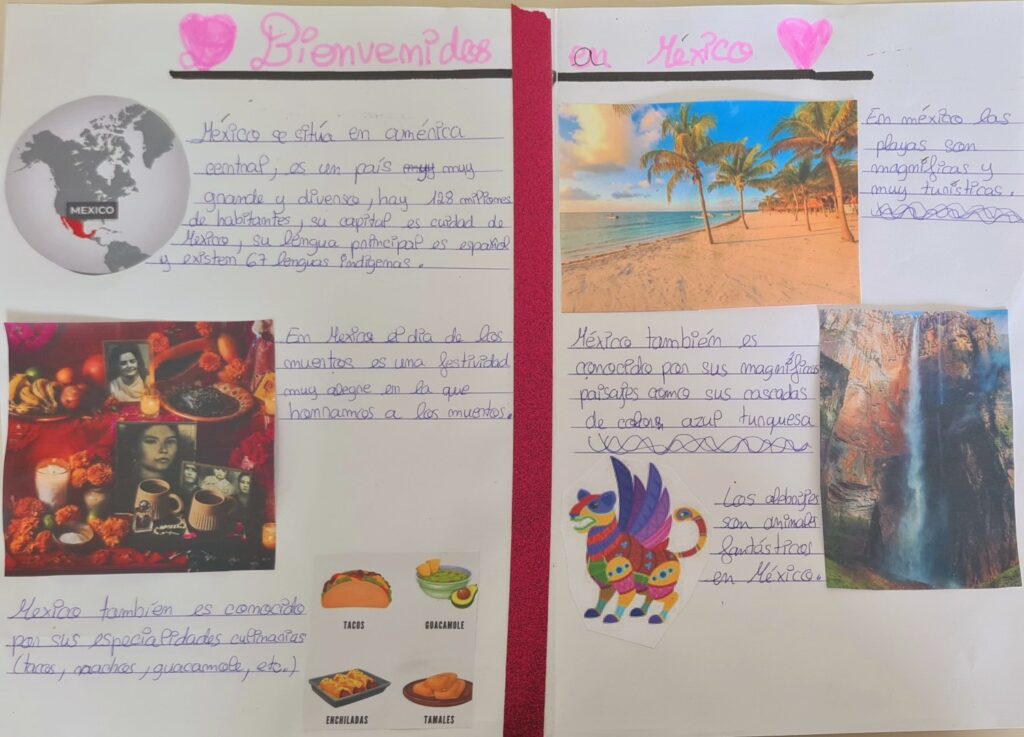 Bienvenidos a México
MEXICO
México se sitúa en américa
central, es un país muy
grande y diverso, hay 128 millones
de habitantes, su capital es cuidad de
Mexico, su lengua principal es español
y existen 67 lenguas indígenas.
En Mexico el dia de los
muertos es una festividad
muy alegre en la que
honramos a los muertos.
Mexico tambien es conocido
por sus especialidades culinarias
(tacos, nachos, guacamole, etc.)
TACOS
GUACAMOLE
ENCHILADAS
TAMALES
En méxico las
playas son
magníficas y
muy turísticas.
México también es
conocido por sus magníficos
paisajes como sus cascadas
de color azul turquesa
Los alebrijes
son animales
fantásticos
en México.